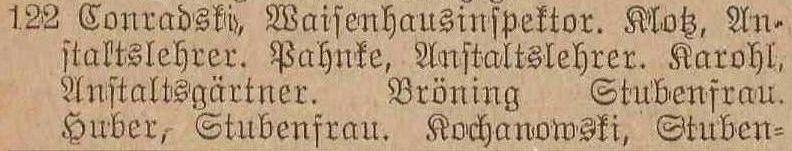 122 Conradski, Waisenhausinspektor. Klotz, An-
staltslehrer. Pahnke, Anstaltslehrer. Karohl,
Anstaltsgärtner. Bröning Stubenfrau.
Huber, Stubenfrau. Kochanowski, Stuben-